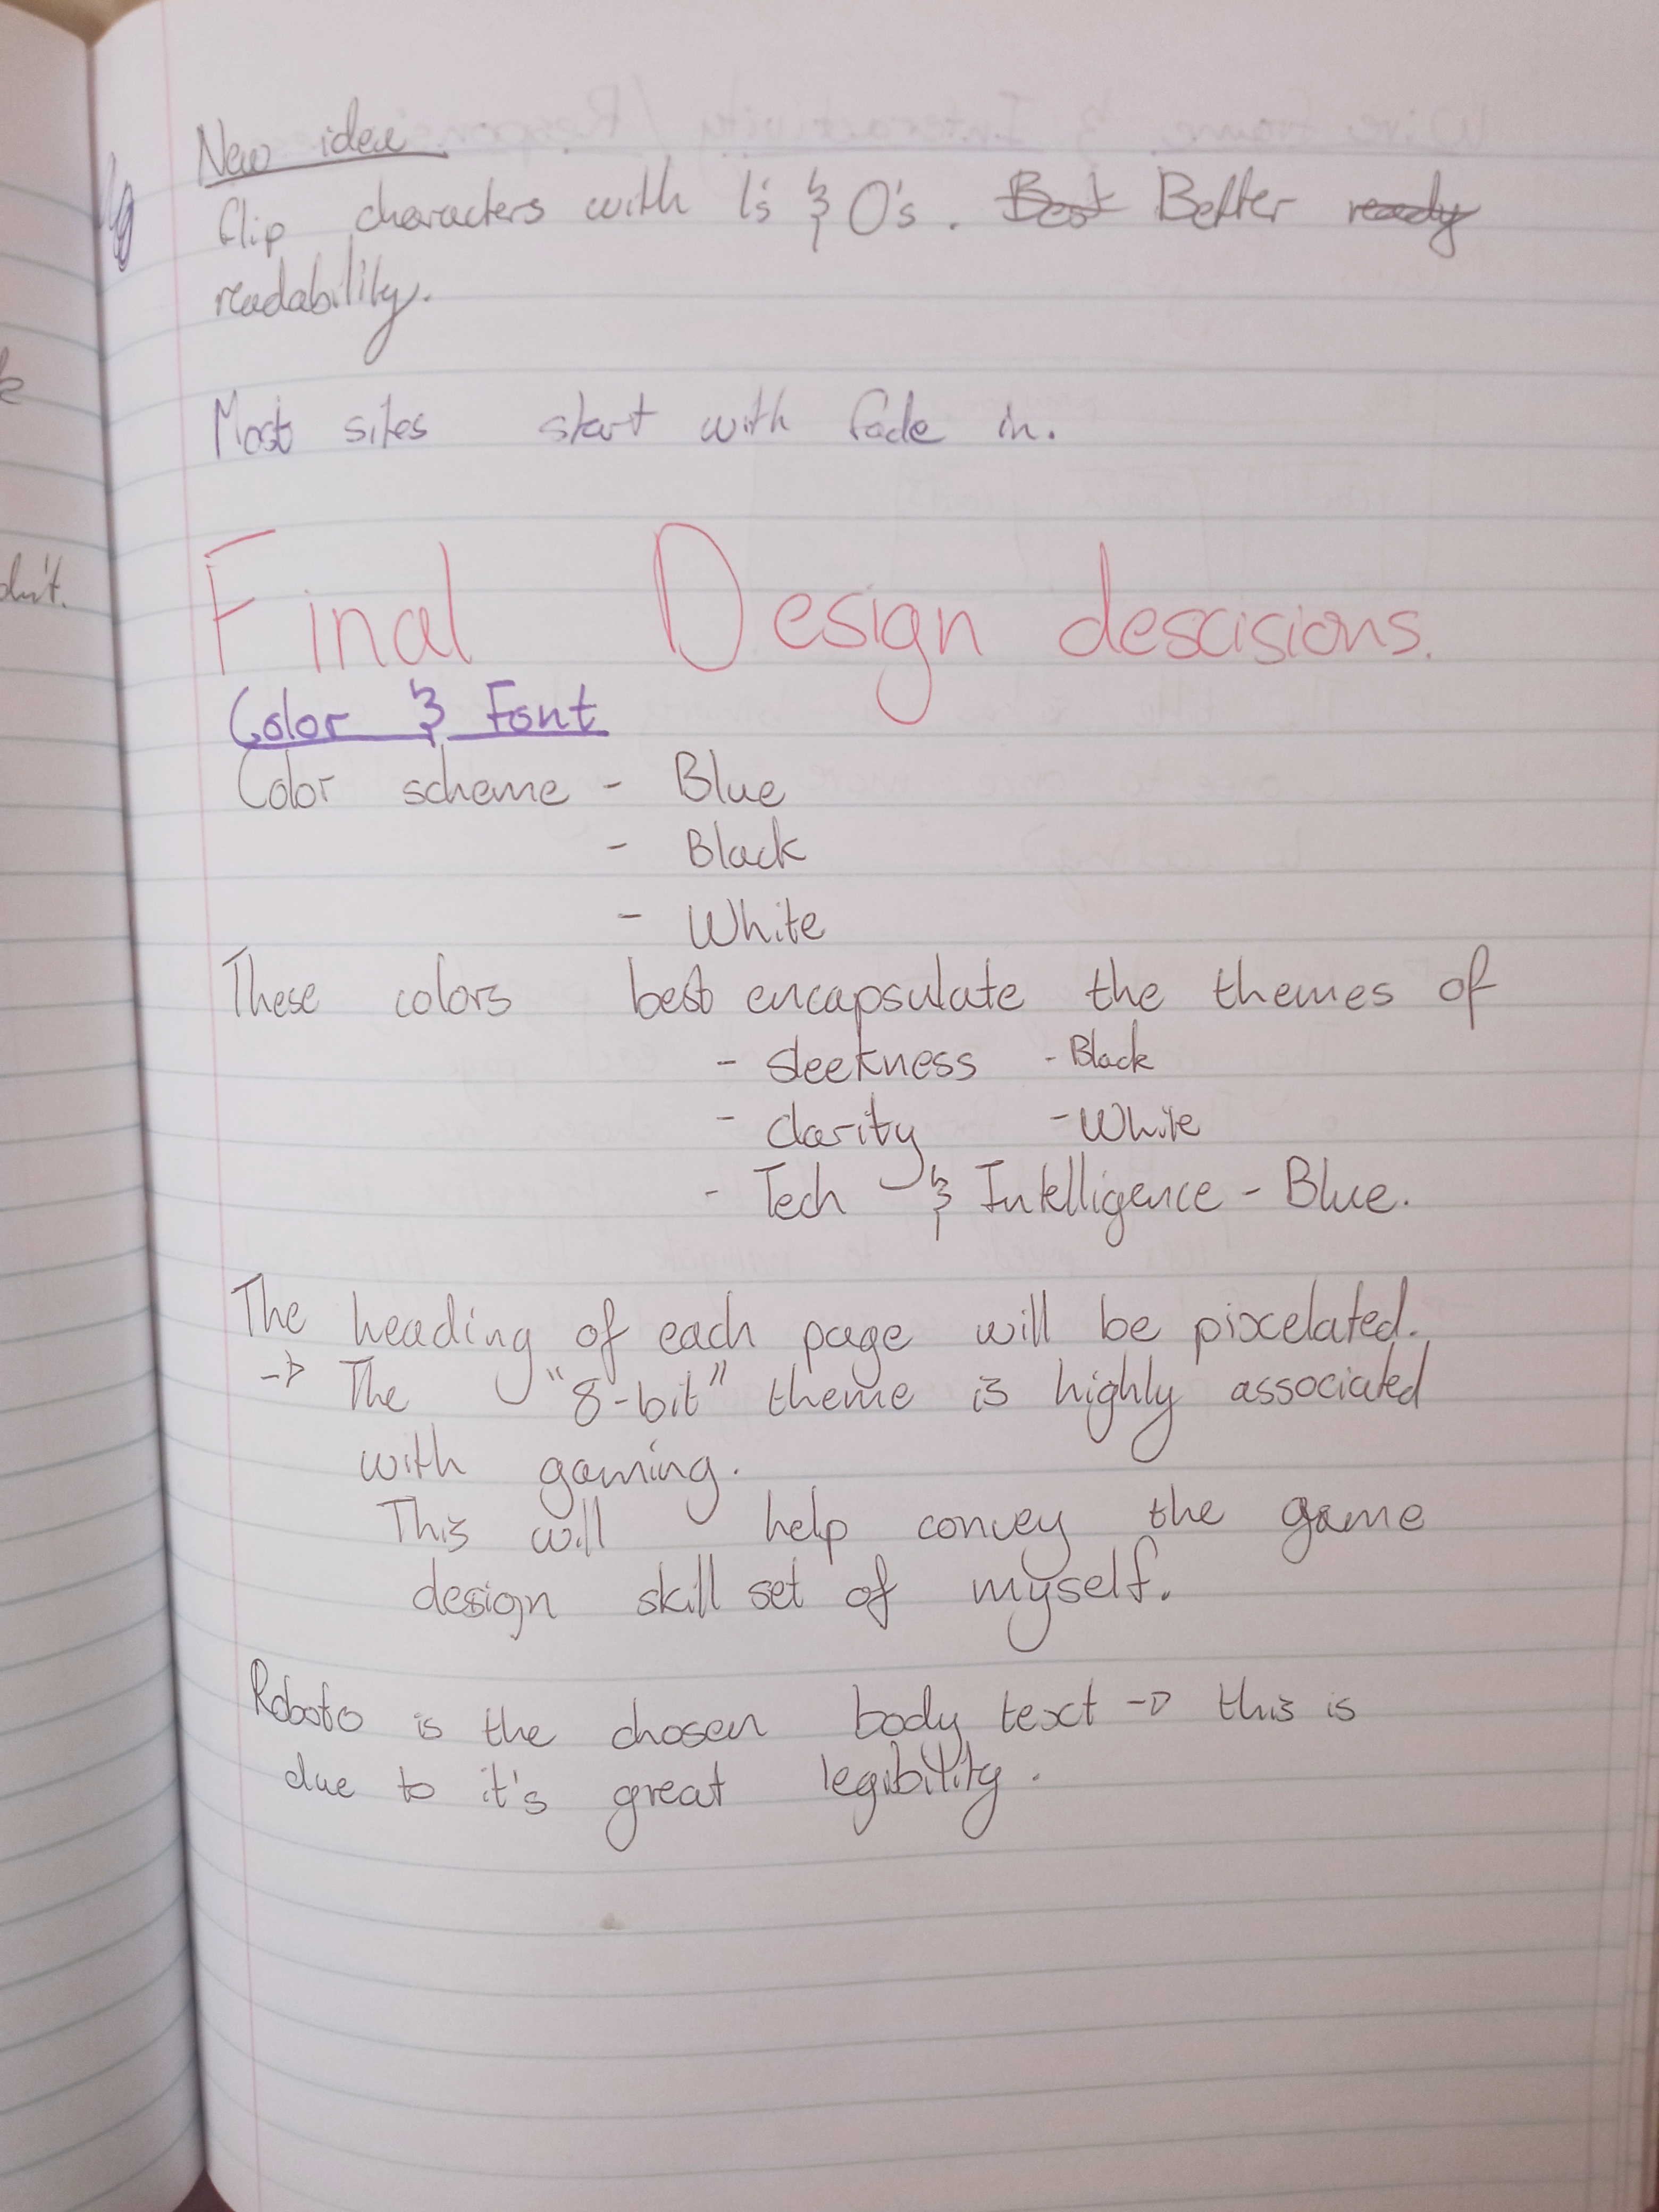 New idea
flip characters with 1's & 0's. Best Better ready
readability.
Most sites start with fade in.
Final Design descisions.
Color & Font
Color scheme - Blue
- Black
- White
These colors best encapsulate the themes of
- sleekness - Black
- clarity - White
- Tech & Intelligence - Blue.
The heading of each page will be pixelated.
-> The "8-bit" theme is highly associated
with gaming.
This will help convey the game
design skill set of myself.
Roboto is the chosen body text -> this is
due to it's great legibility.